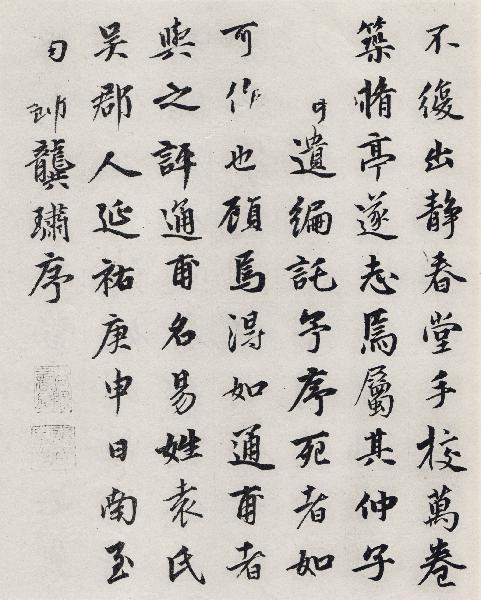 不復出静春堂手校萬卷
築脩亭遂志焉屬其仲子
遺編託予序死者如
可作也顧焉得如通甫者
與之評通甫名易姓袁氏
吳郡人延祐庚申日南至
龔璛序